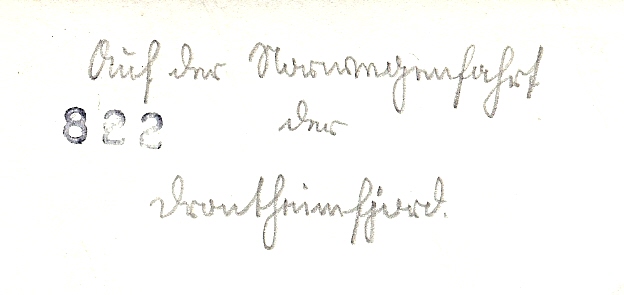 Auf der Norwegenfahrt
822 der
Drontheimfjord.